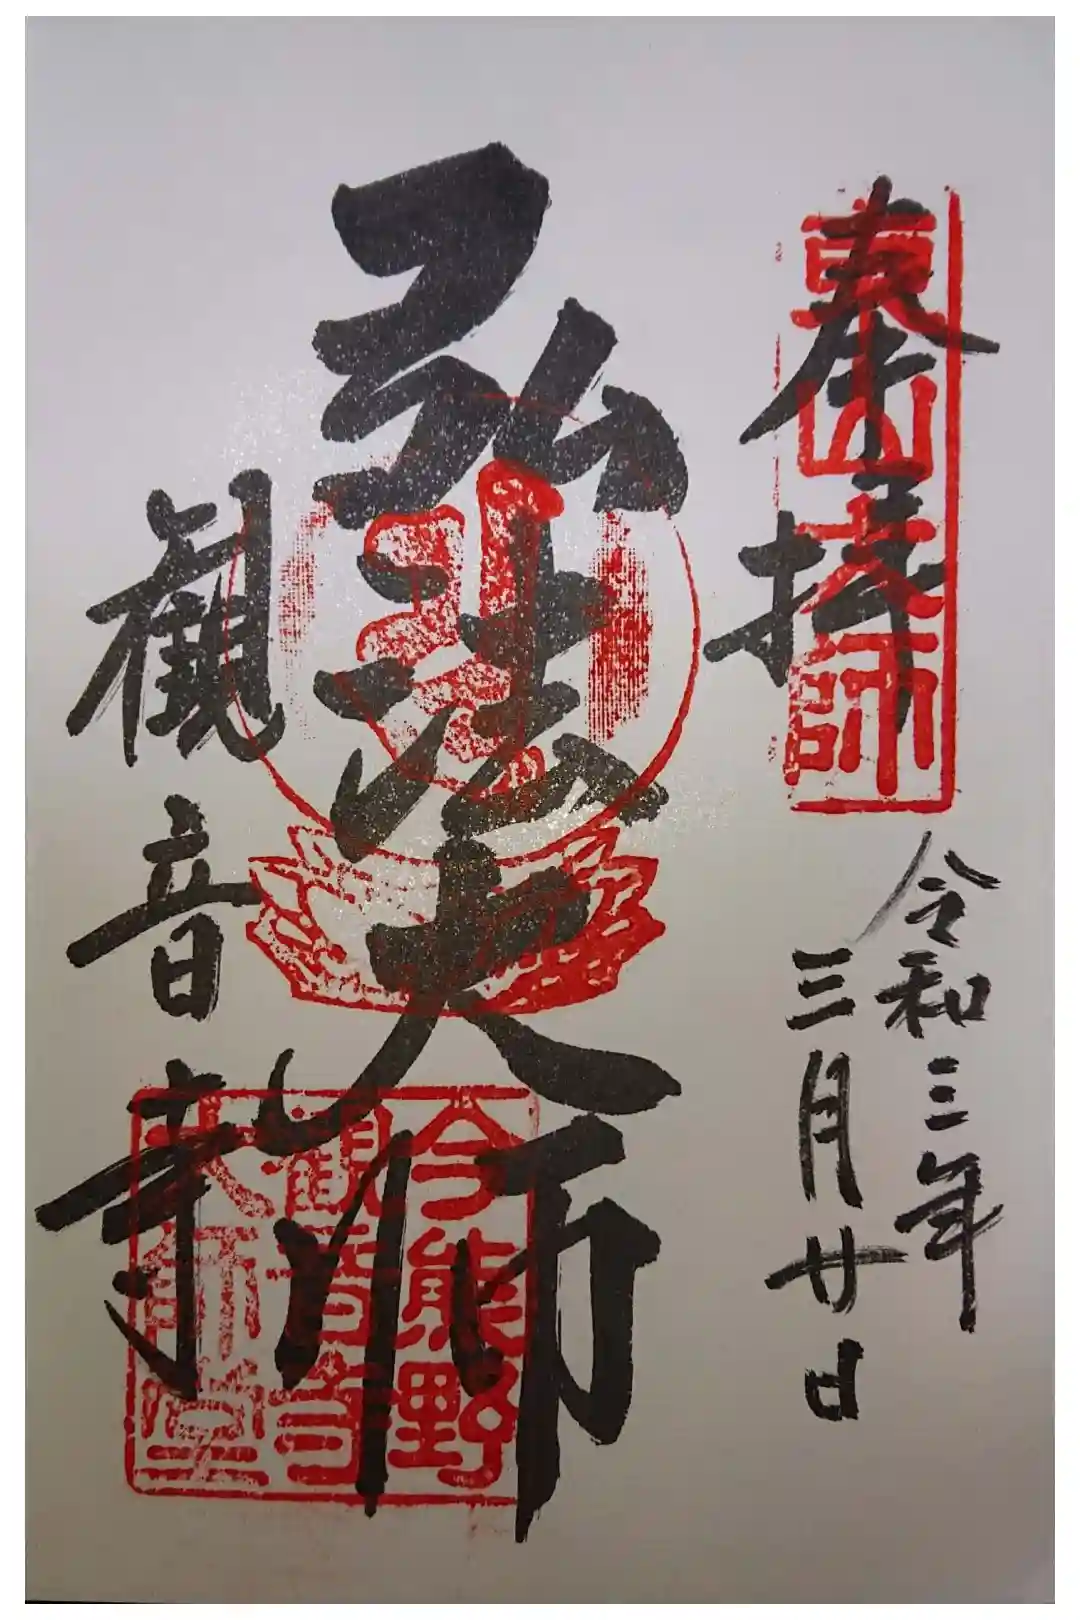 奉拝
東山大師
令和三年
三月廿日
弘法大師
観音寺
今熊野
観音寺
大師堂